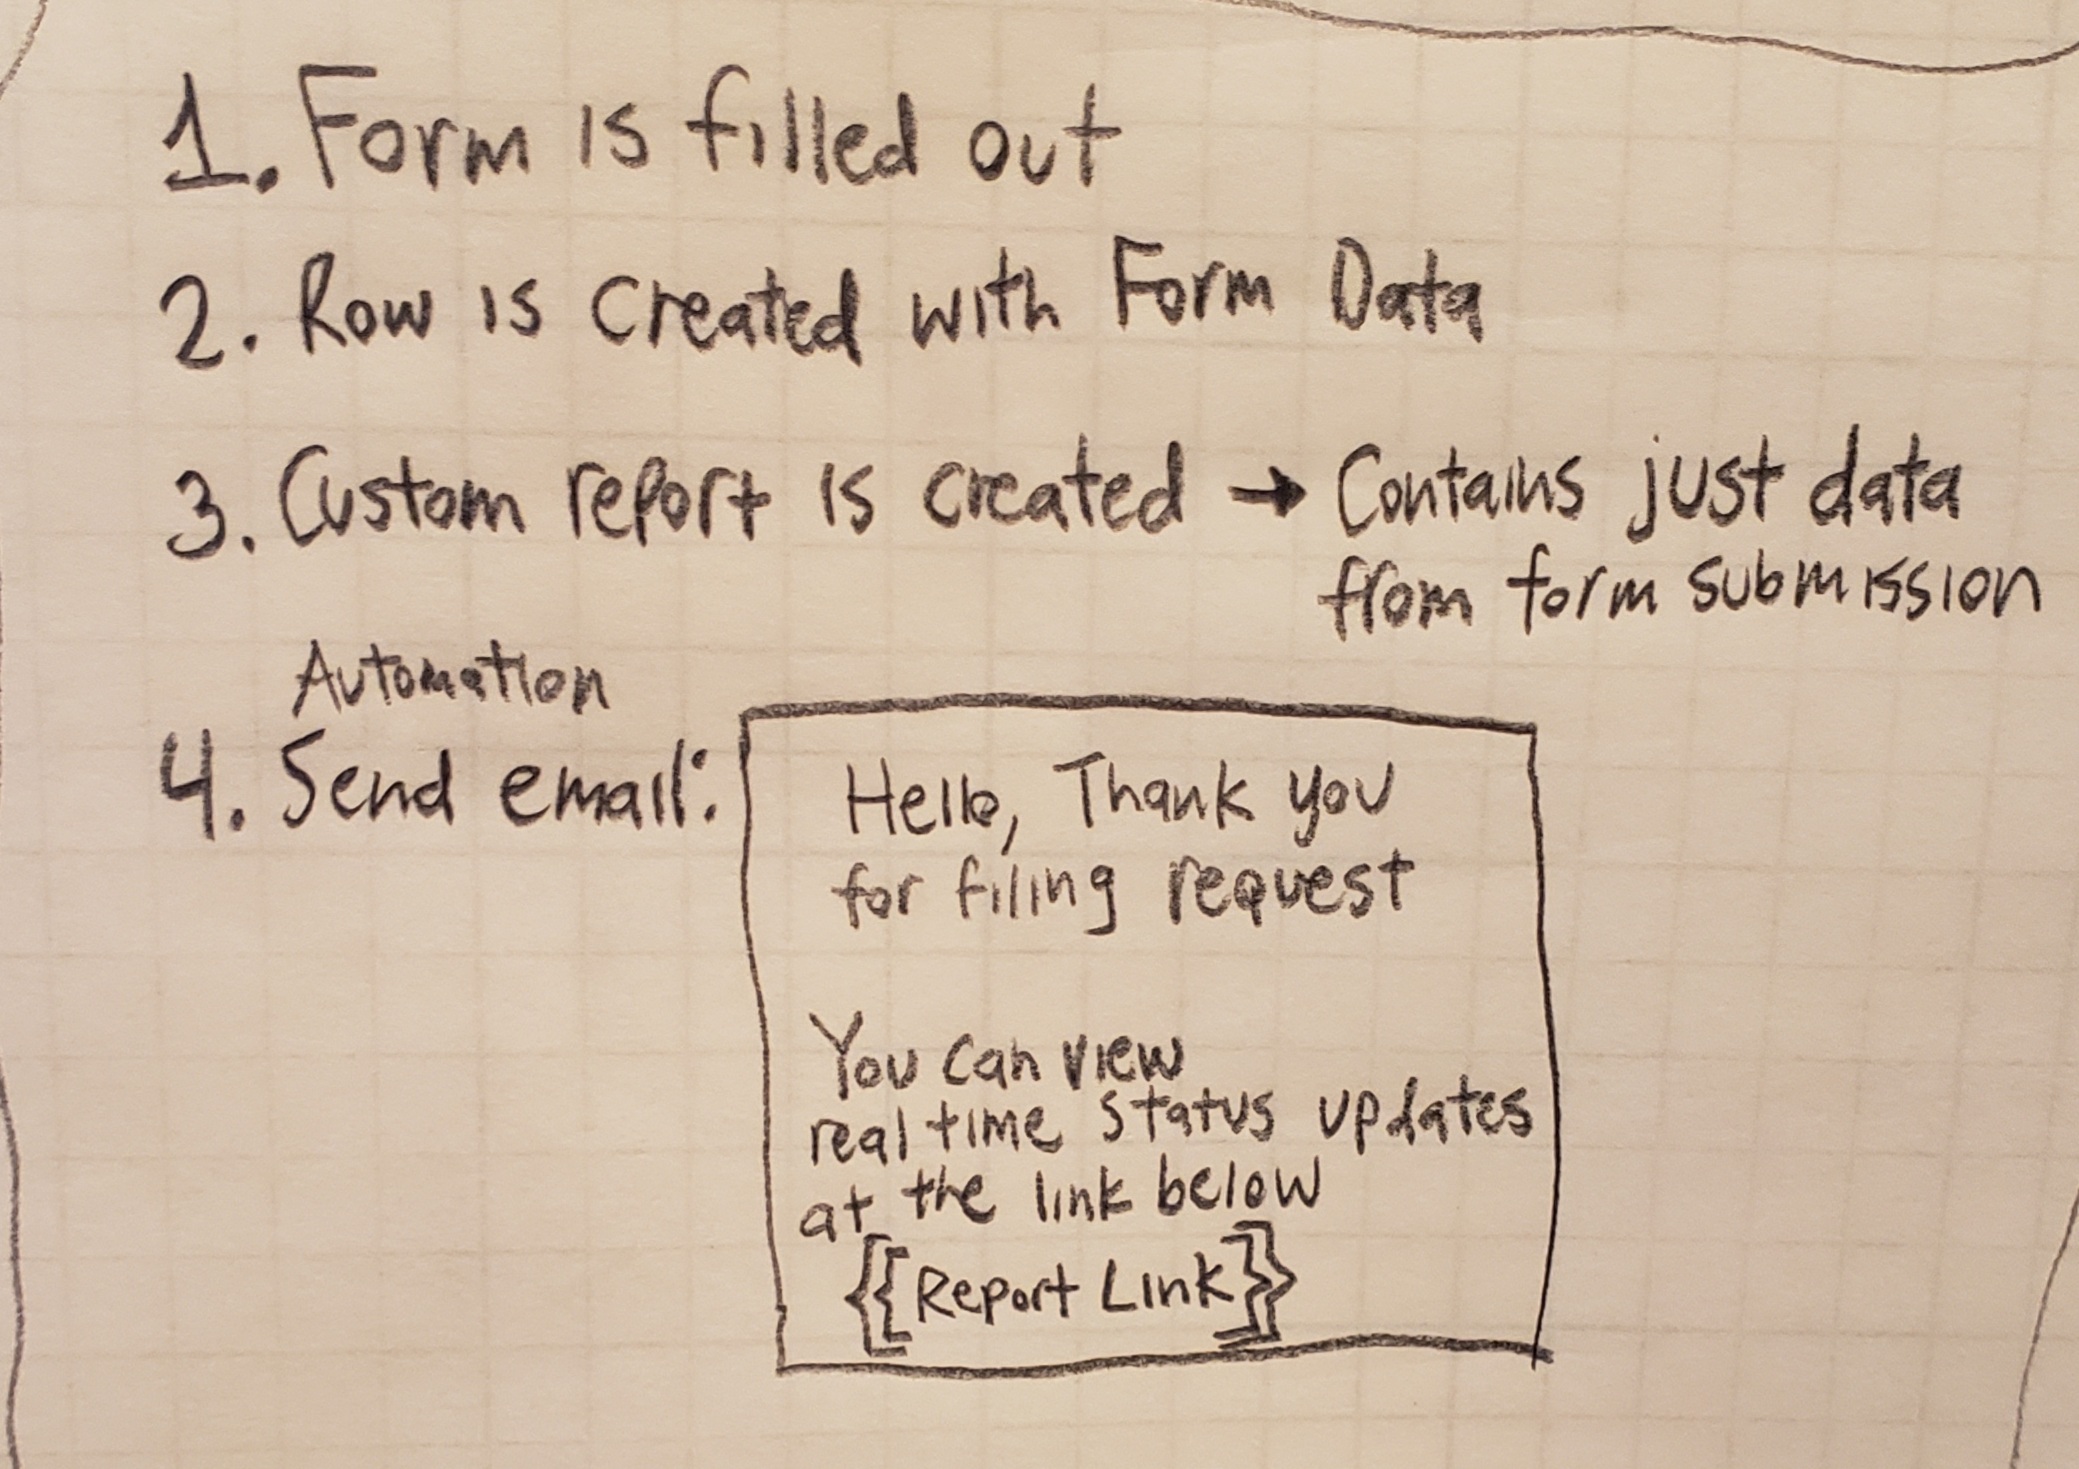 1. Form is filled out
2. Row is created with Form Data
3. Custom report is created → Contains just data
from form submission
Automation
4. Send email:
Hello, Thank you
for filing request
You can view
real time status updates
at the link below
{{Report Link}}